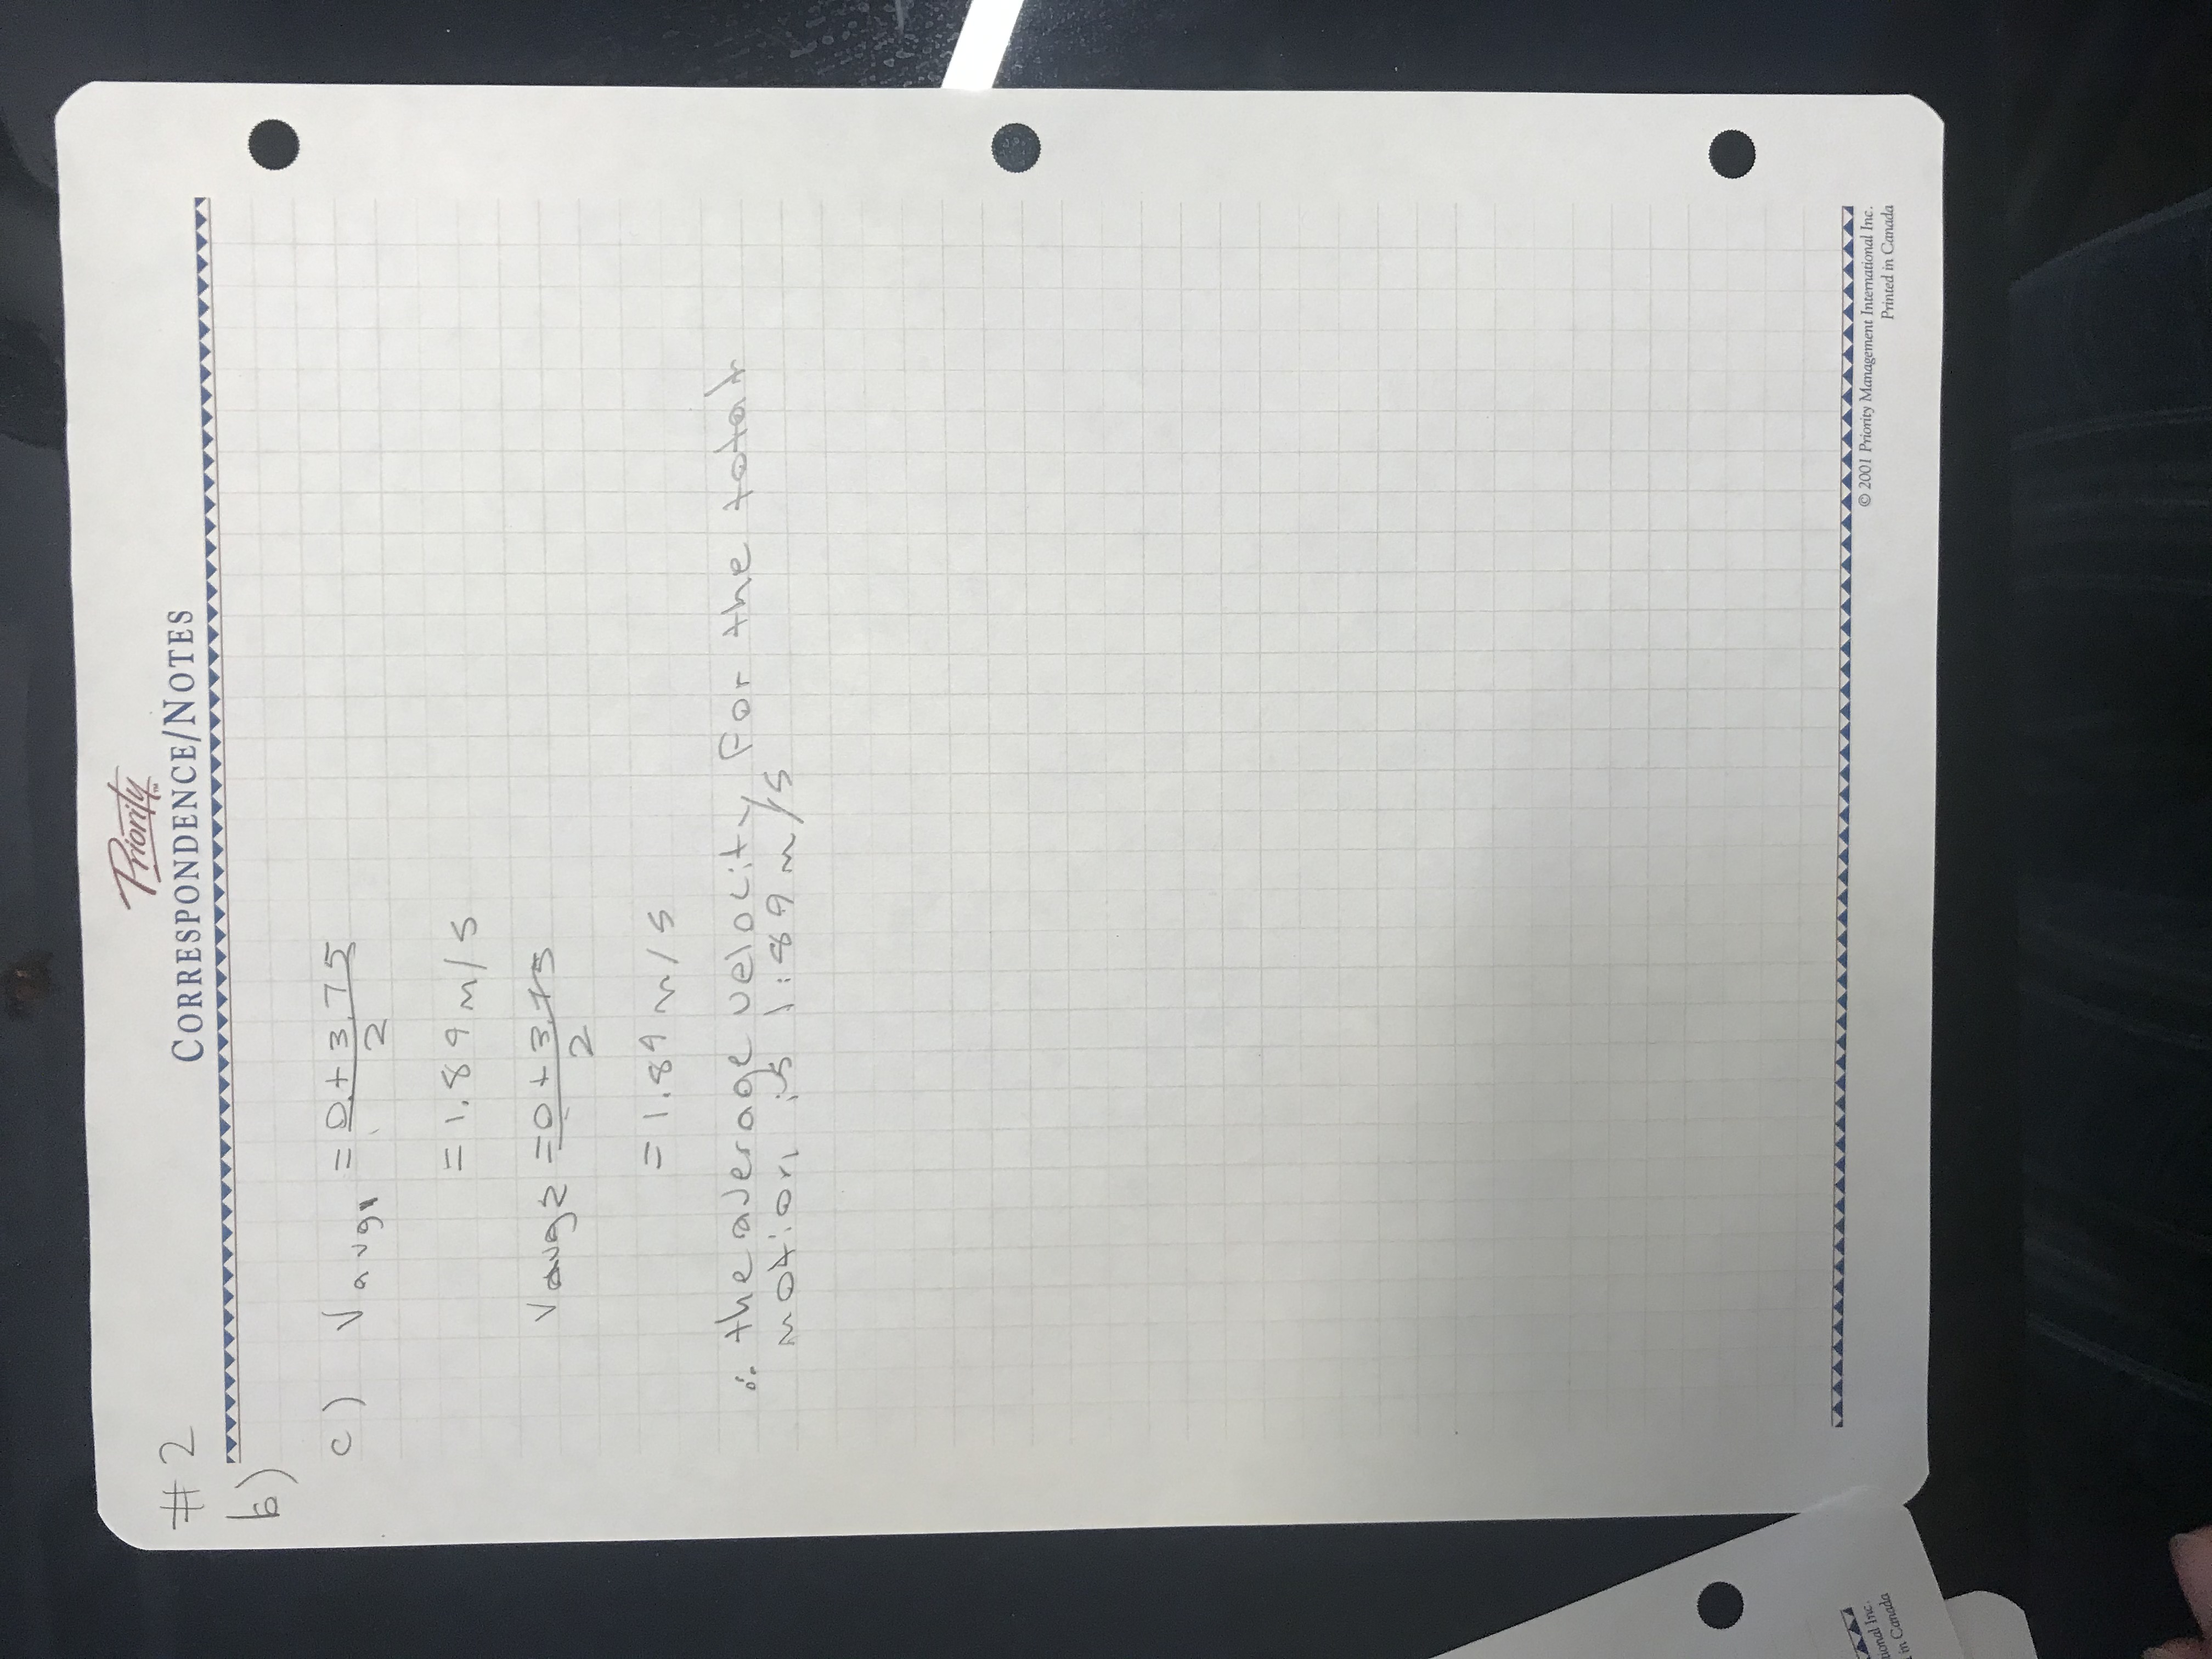 Priority™
CORRESPONDENCE/NOTES
#2
b)
c) Vavg1 = 0 + 3.75
2
= 1.89 m/s
Vavg2 = 0 + 3.75
2
= 1.89 m/s
∴ the average velocity for the total
motion is 1.89 m/s
© 2001 Priority Management International Inc.
Printed in Canada
tional Inc.
in Canada